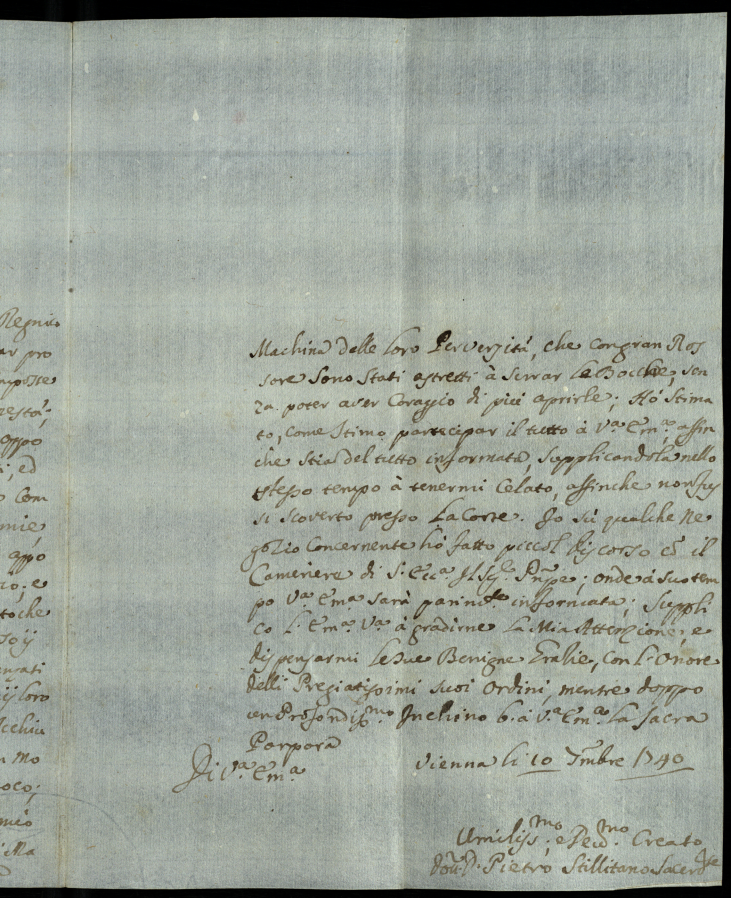 Regnic
ar pro
mposse
resta;
oppo
i; ed
Com
mie
appo
io; e
toche
enzati
ij loro
n mo
oco;
meo
illa
Machina delle loro Perversitá, che con gran Ros
sore sono stati astretti à serrar le Bocche, sen
za poter aver Coraggio di piú aprirle; Hó stima
to, come stimo, partecipar il tutto à V.ª Em.ª, affin
che stia del tutto informata, supplicandola nello
stesso tempo à tenermi Celato, affinche non fus
si scoverto presso la Corte. Io sù qualche Ne
gozio Concernente hó fatto piccol discorso cō il
Cameriere di S. Ecc.ª Il Sig.r Pn̄pe; onde á suo tem
po V.ª Em.ª sará parim.te informata; Suppli
co L' Em.ª V.ª á gradirne la Mia Attenzione, e
dispensarmi le sue Benigne Grazie, con l' Onore
delli Pregiatissimi suoi Ordini, mentre doppo
un Profondiss.mo Inchino b. à V.ª Em.ª la Sacra
Porpora
Di V.ª Em.ª
Vienna li 10 7mbre 1740
Umiliss.mo; e Dev.mo Creato
D. Pietro Stillitano Sacerd.te